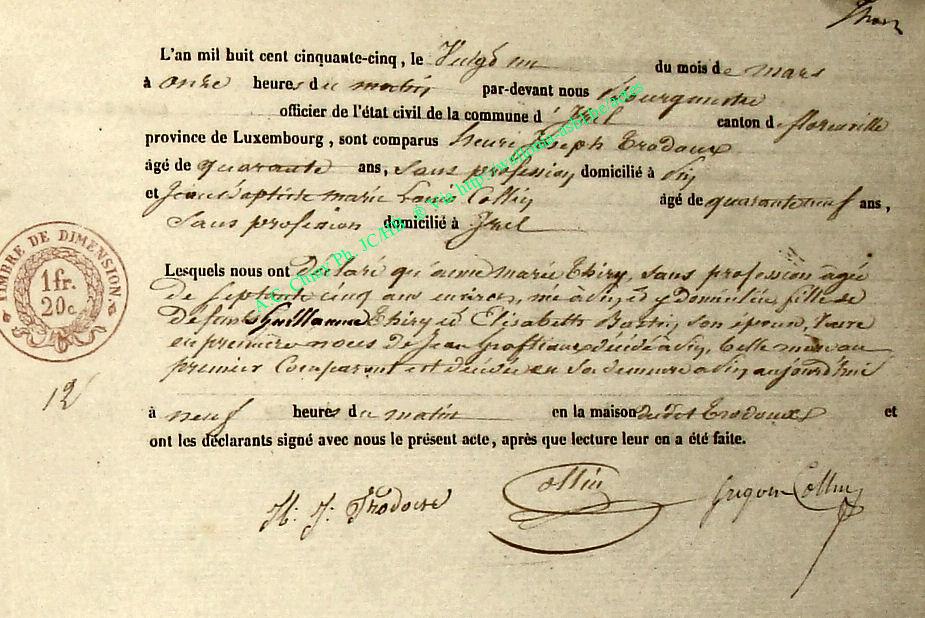 L'an mil huit cent cinquante-cinq, le Vingt un du mois de mars
à onze heures du matin par-devant nous Bourgmestre
officier de l'état civil de la commune d'Izel canton de florenville
province de Luxembourg, sont comparus henri Joseph Trodoux
âgé de quarante ans, sans profession domicilié à
et Jean Baptiste marie Louis Collin âgé de quarante neuf ans,
Sans profession domicilié à Izel
TIMBRE DE DIMENSION.
1 fr.
20 c.
Lesquels nous ont déclaré qu'anne marie Thiry, sans profession âgée
de septante cinq ans environ, née à et y Domiciliée, fille de
Défunts Guillaume Thiry et Elisabeth son épouse, Veuve
en première noces de Jean décédé à belle mère au
premier Comparant est décédée en Sa demeure à aujourd'hui
12
à neuf heures du matin en la maison dudit Trodoux et
ont les déclarants signé avec nous le présent acte, après que lecture leur en a été faite.
H. J. Trodoux Collin Collin
A.G. Chiny Ph. JC/HB @ Via http://wallonia-asbl.be/actes